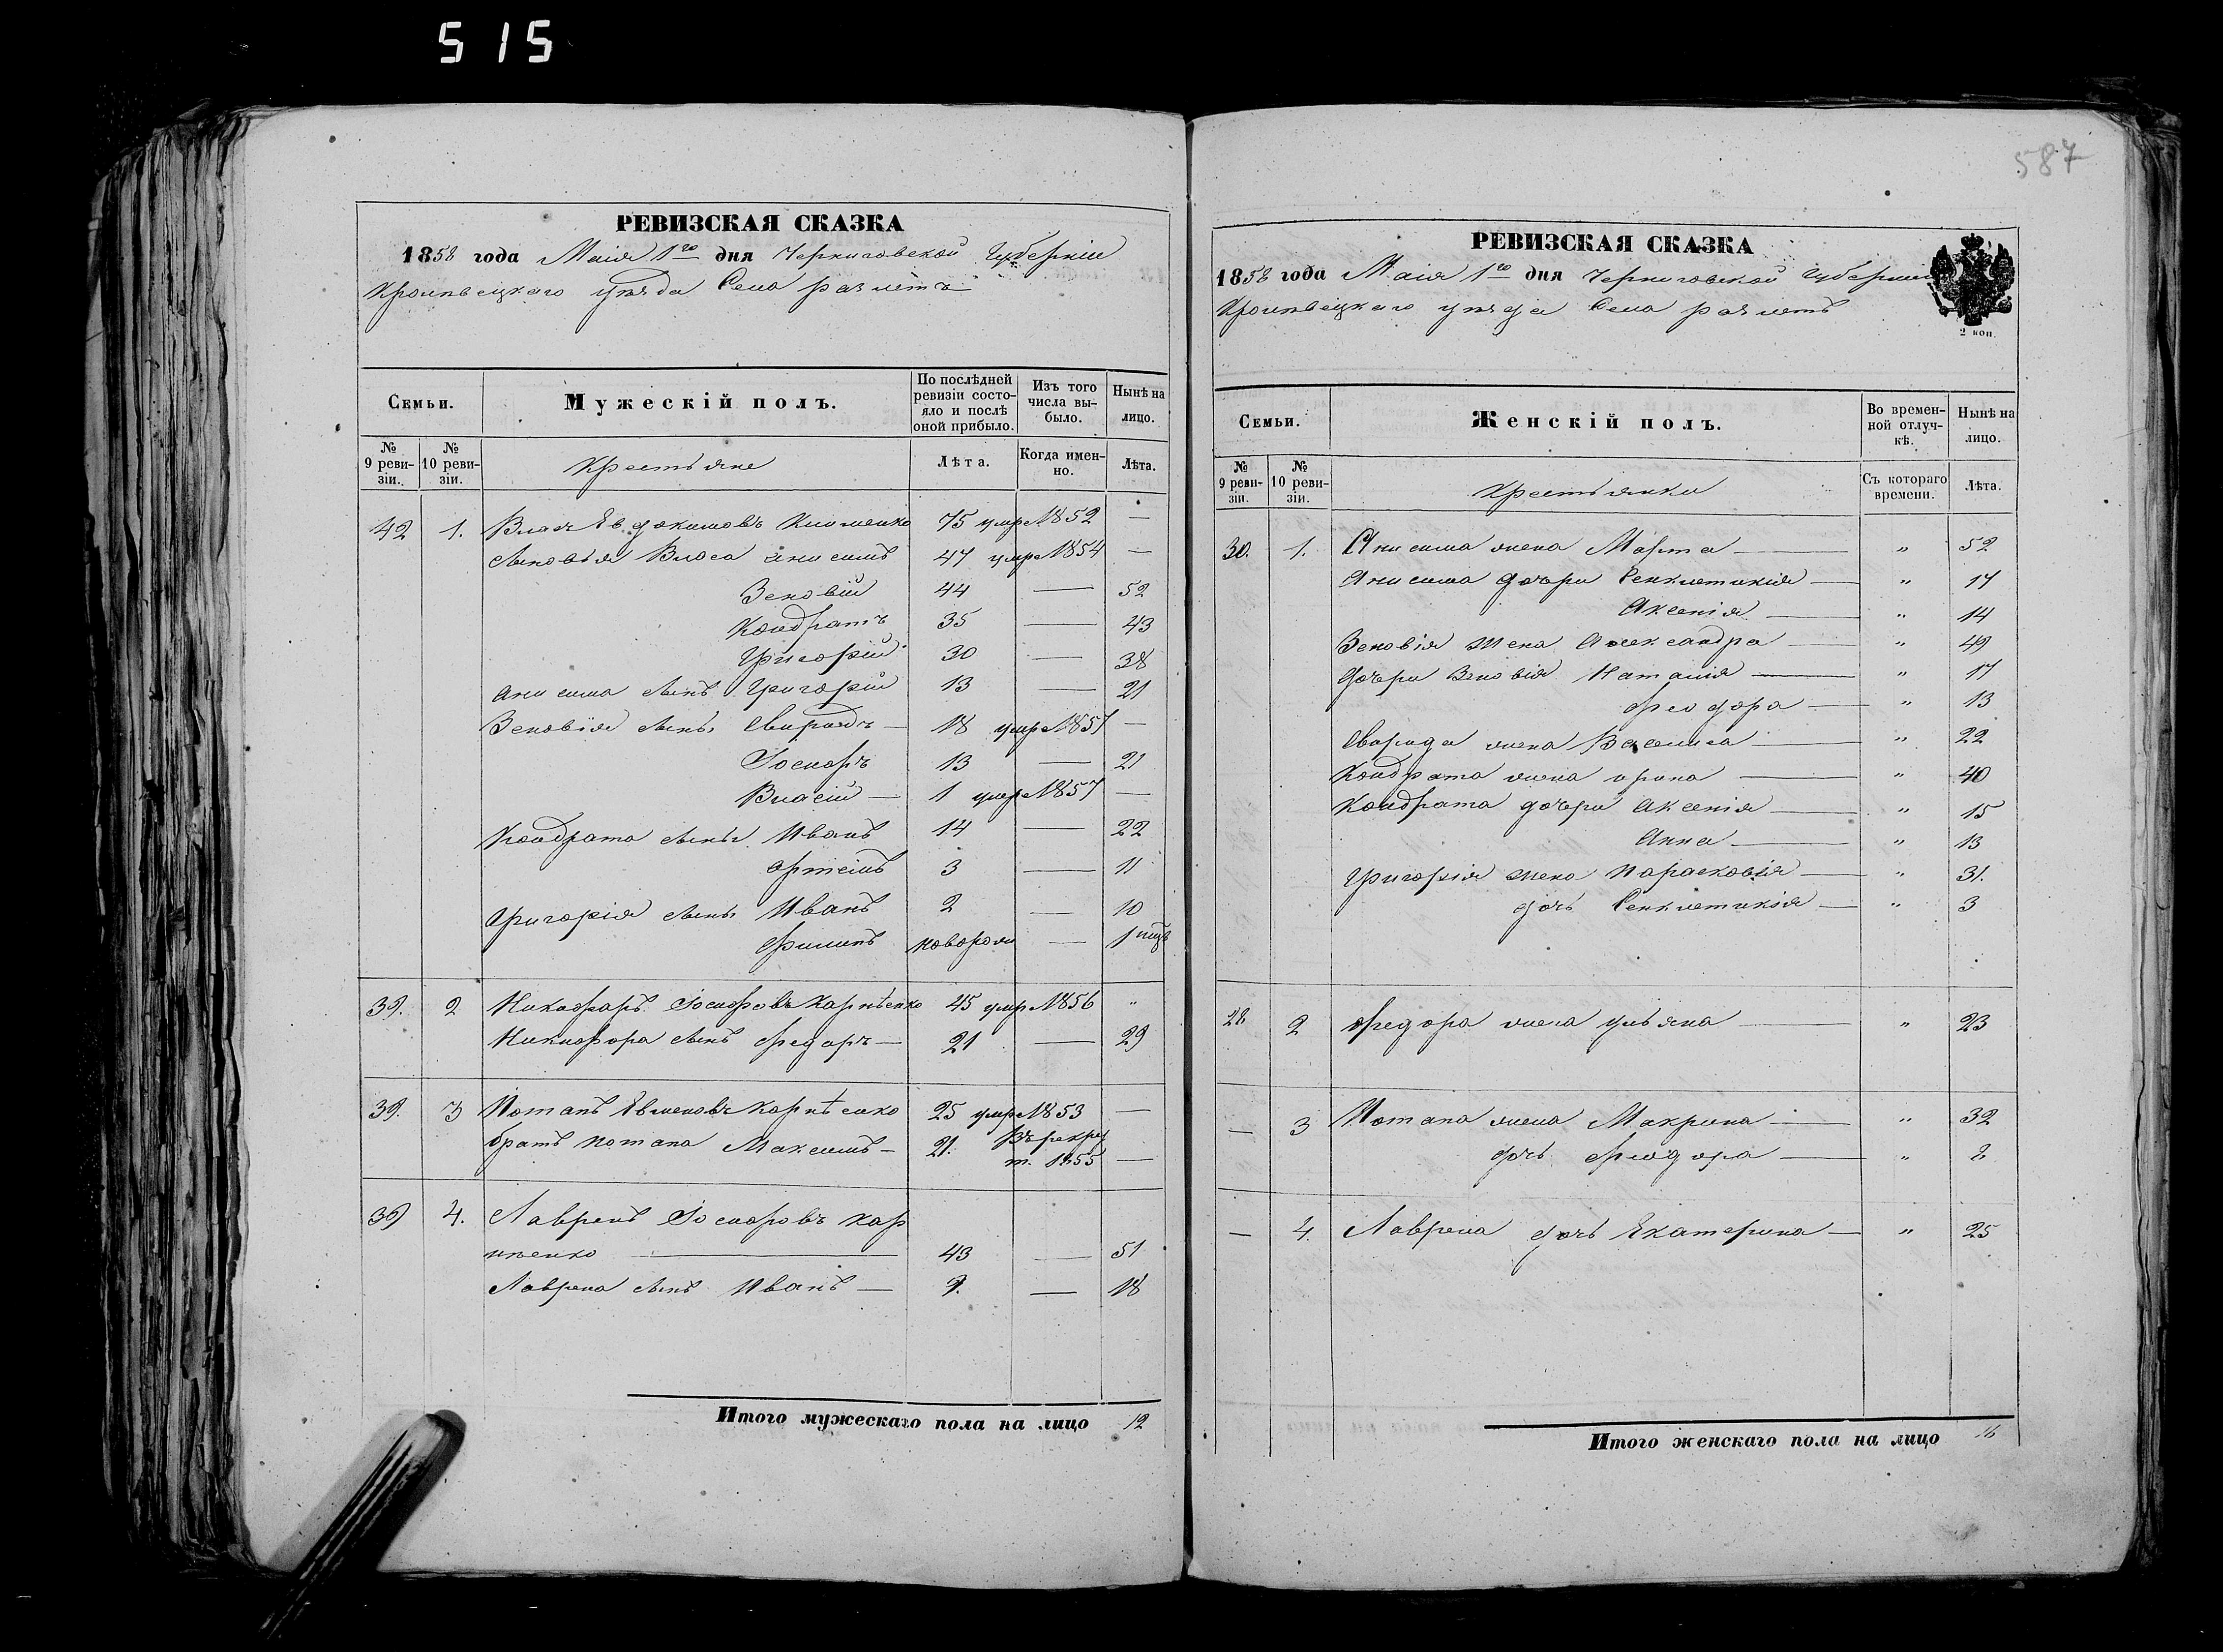 515
587
РЕВИЗСКАЯ СКАЗКА
1858 года Маія 1го дня Черниговской Губерніи
Кролевецкаго уѣзда Села
Семьи.
Мужескій полъ.
По послѣдней ревизіи состояло и послѣ оной прибыло.
Изъ того числа выбыло.
Нынѣ на лицо.
№ 9 ревизіи.
№ 10 ревизіи.
Крестьяне
Лѣта.
Когда именно.
Лѣта.
42 1. Власъ Евдокимовъ Клименко 75 умр 1852 —
Сыновья Власа Анисимъ 47 умр 1854 —
Зеновій 44 — 52
Кондратъ 35 — 43
Григорій 30 — 38
Анисима сынъ Григорій 13 — 21
Зеновія сыны Свиридъ — 18 умр 1857 —
Іосифъ 13 — 21
Власій — 1 умр 1857 —
Кондрата сыны Иванъ 14 — 22
Артемъ 3 — 11
Григорія сыны Иванъ 2 — 10
Филипъ новорож — 1
39. 2 Никифоръ Іосифовъ Карпѣенко 45 умр 1856 "
Никифора сынъ Федоръ — 21 — 29
39. 3 Потапъ Карпѣенко 25 умр 1853 —
братъ Потапа Максимъ — 21. Въ рекру
т. 1855 —
39 4. Лавренъ Іосифовъ Кар
пѣенко — 43 — 51
Лаврена сынъ Иванъ — — 18
Итого мужескаго пола на лицо 12
РЕВИЗСКАЯ СКАЗКА
1858 года Маія 1го дня Черниговской Губерніи
Кролевецкаго уѣзда Села
2 коп.
Семьи.
Женскій полъ.
Во временной отлучкѣ.
Нынѣ на лицо.
№ 9 ревизіи.
№ 10 ревизіи.
Крестьянки
Съ котораго времени.
Лѣта.
30. 1. Анисима жена Марта — " 52
Анисима дочери Сенклетикія — " 17
Аксенія — " 14
Зеновія жена Александра — " 49
дочери Зеновія Наталія — " 17
Феодора — " 13
Свирида жена Василиса — " 22
Кондрата жена Ирина — " 40
Кондрата дочери Аксенія — " 15
Анна — " 13
Григорія жена Парасковія — " 31.
дочь Сенклетикія — " 3
28. 2 Федора жена Ульяна — " 23
— 3 Потапа жена Макрина — " 32
дочь Феодора — " 2.
— 4. Лаврена дочь Екатерина — " 25
Итого женскаго пола на лицо 16